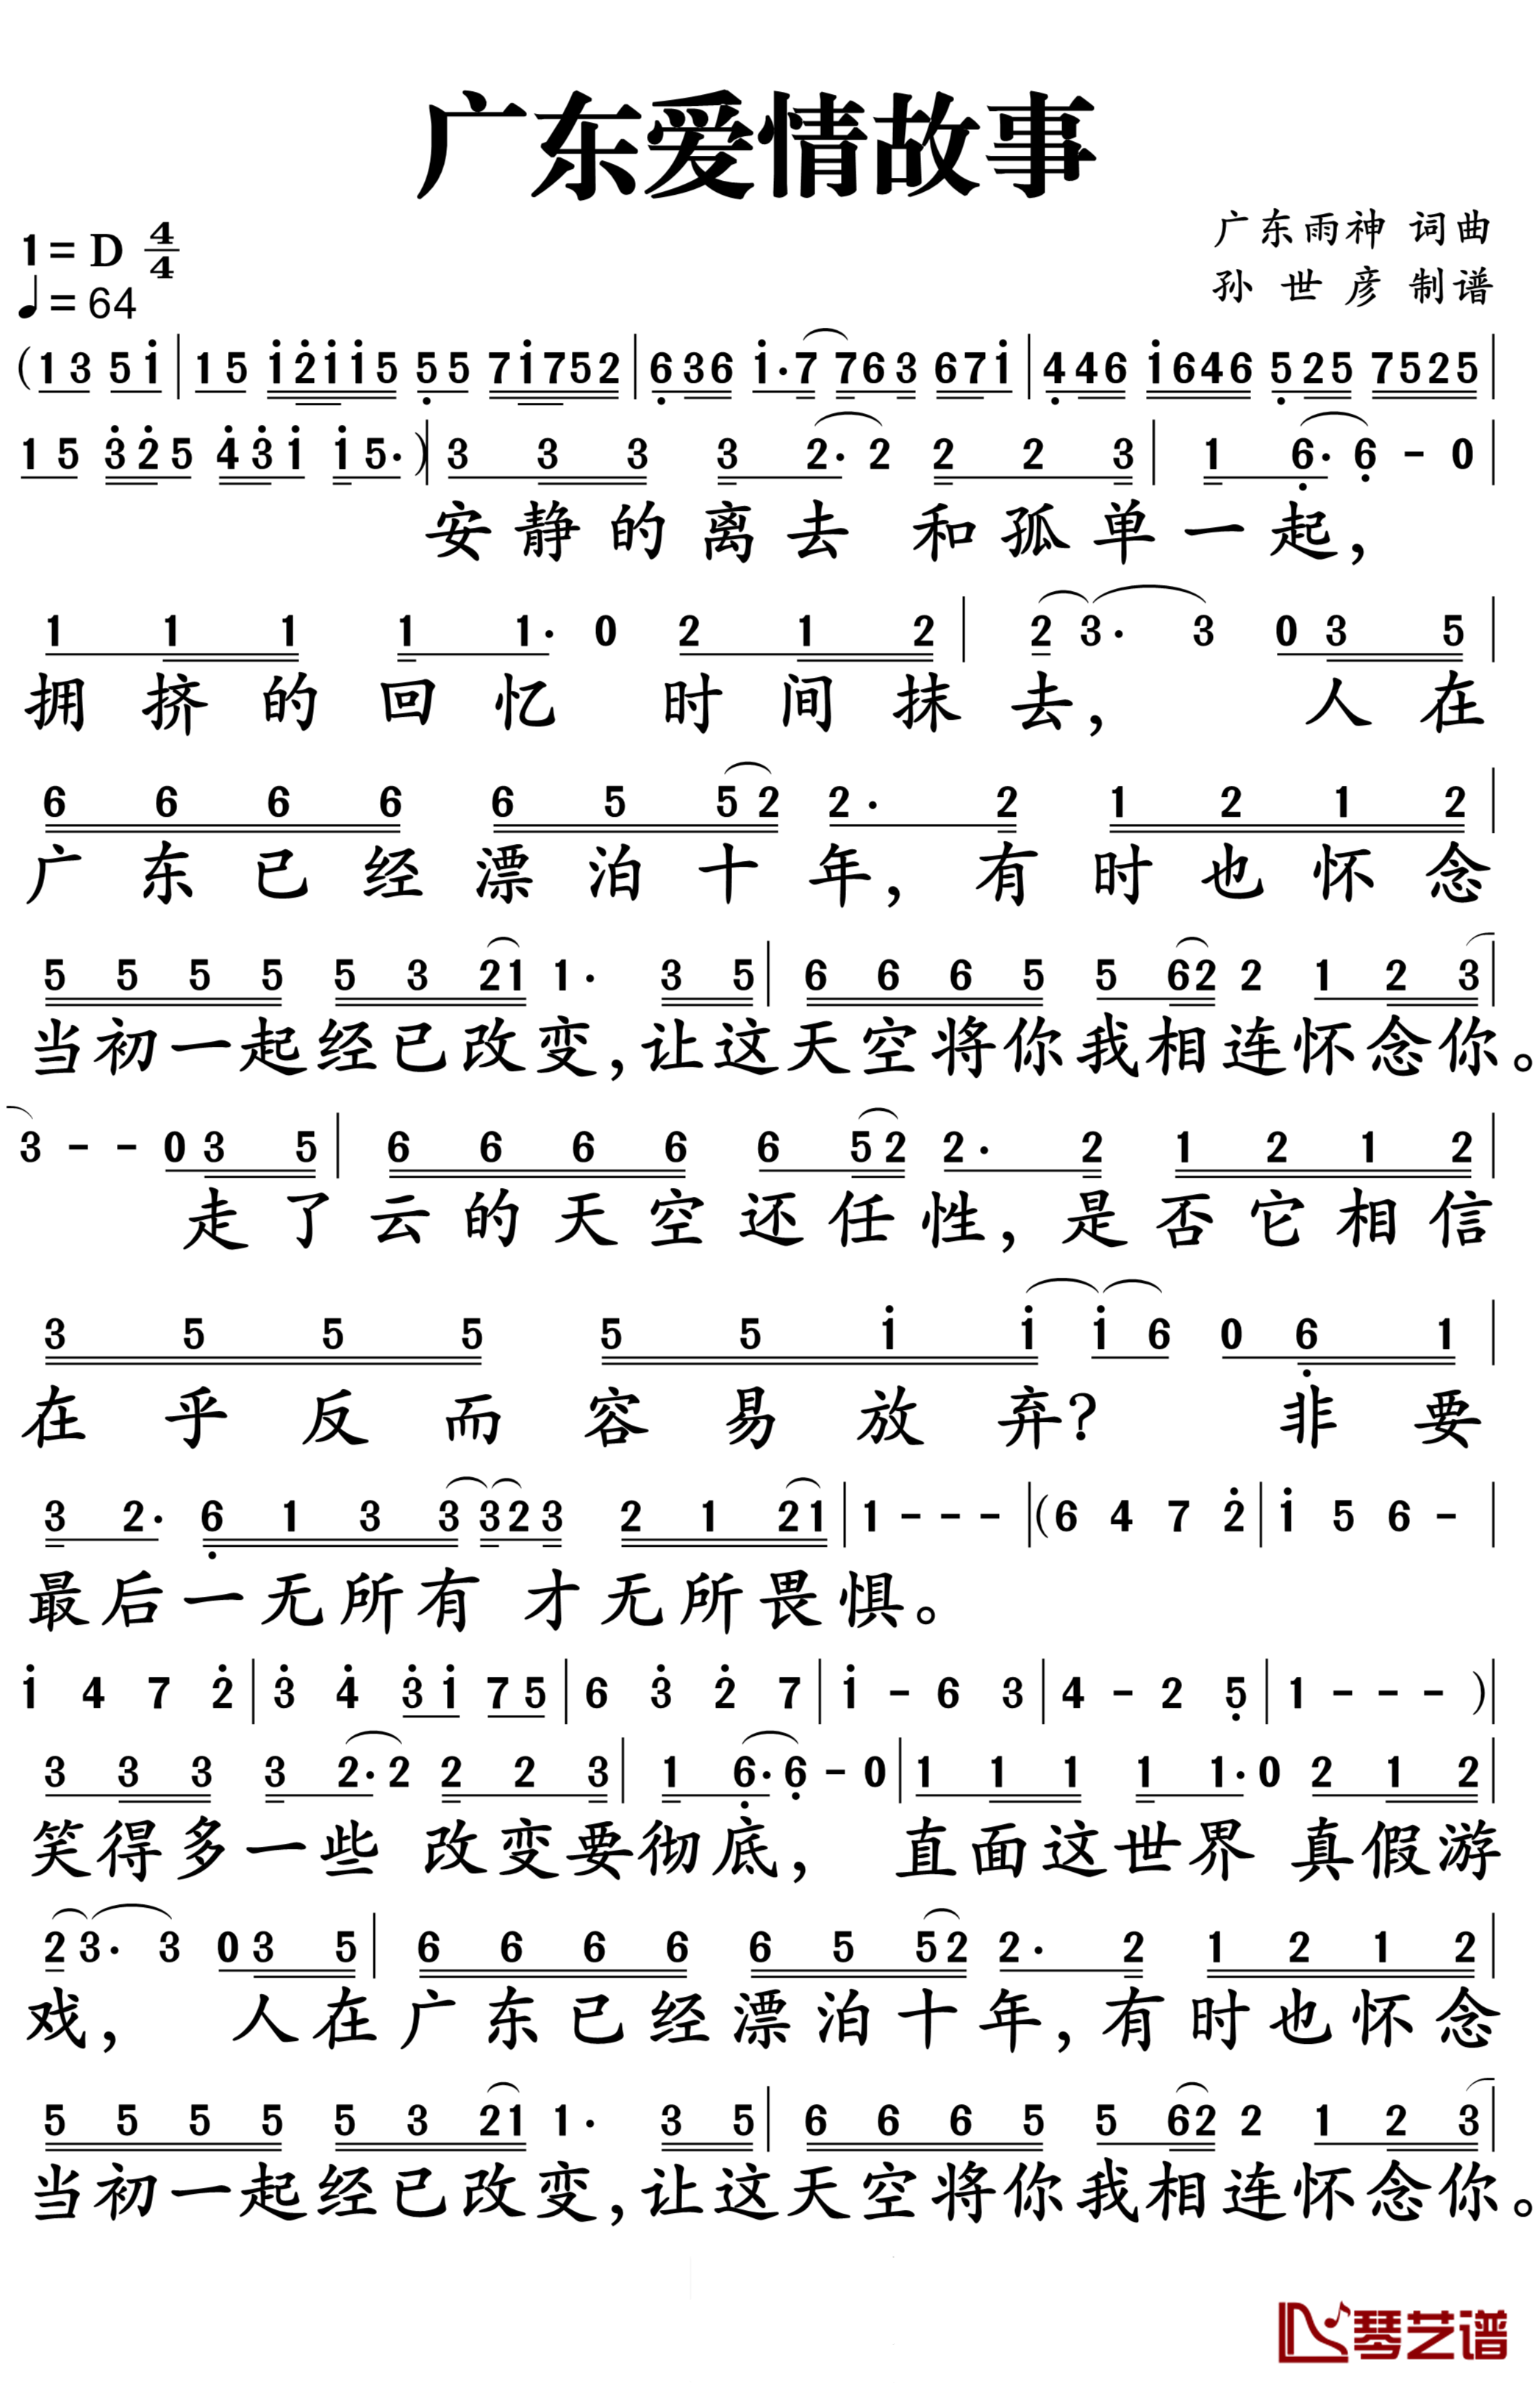 广东爱情故事
广东雨神 词曲
1= D 4/4
孙世彦 制谱
♩= 64
(1 3 5 i | 1 5 i2ii5 5 5 7i752 | 636 i·7 763 67i | 446 i646 525 7525 |
1 5 3 2 5 4 3 i i 5· ) 3 3 3 3 2· 2 2 2 3 | 1 6· 6 - 0 |
安静的离去 和孤单一起，
1 1 1 1 1· 0 2 1 2 | 2 3· 3 0 3 5 |
拥挤的回忆 时间抹去， 人在
6 6 6 6 6 5 5 2 2· 2 1 2 1 2 |
广东已经漂泊十年，有时也怀念
5 5 5 5 5 3 21 1· 3 5 | 6 6 6 5 5 62 2 1 2 3 |
当初一起经已改变，让这天空将你我相连怀念你。
3 - - 0 3 5 | 6 6 6 6 6 5 2 2· 2 1 2 1 2 |
走了云的天空还任性，是否它相信
3 5 5 5 5 5 i i i 6 0 6 1 |
在乎反而容易放弃？ 非要
3 2· 6 1 3 3 3 2 3 2 1 21 | 1 - - - | (6 4 7 2 | i 5 6 - |
最后一无所有 才无所畏惧。
i 4 7 2 | 3 4 3 i 7 5 | 6 3 2 7 | i - 6 3 | 4 - 2 5 | 1 - - - ) |
3 3 3 3 2· 2 2 2 3 | 1 6· 6 - 0 | 1 1 1 1 1· 0 2 1 2 |
笑得多一些 改变要彻底， 直面这世界 真假游
2 3· 3 0 3 5 | 6 6 6 6 6 5 5 2 2· 2 1 2 1 2 |
戏， 人在广东已经漂泊十年，有时也怀念
5 5 5 5 5 3 21 1· 3 5 | 6 6 6 5 5 62 2 1 2 3 |
当初一起经已改变，让这天空将你我相连怀念你。
琴艺谱